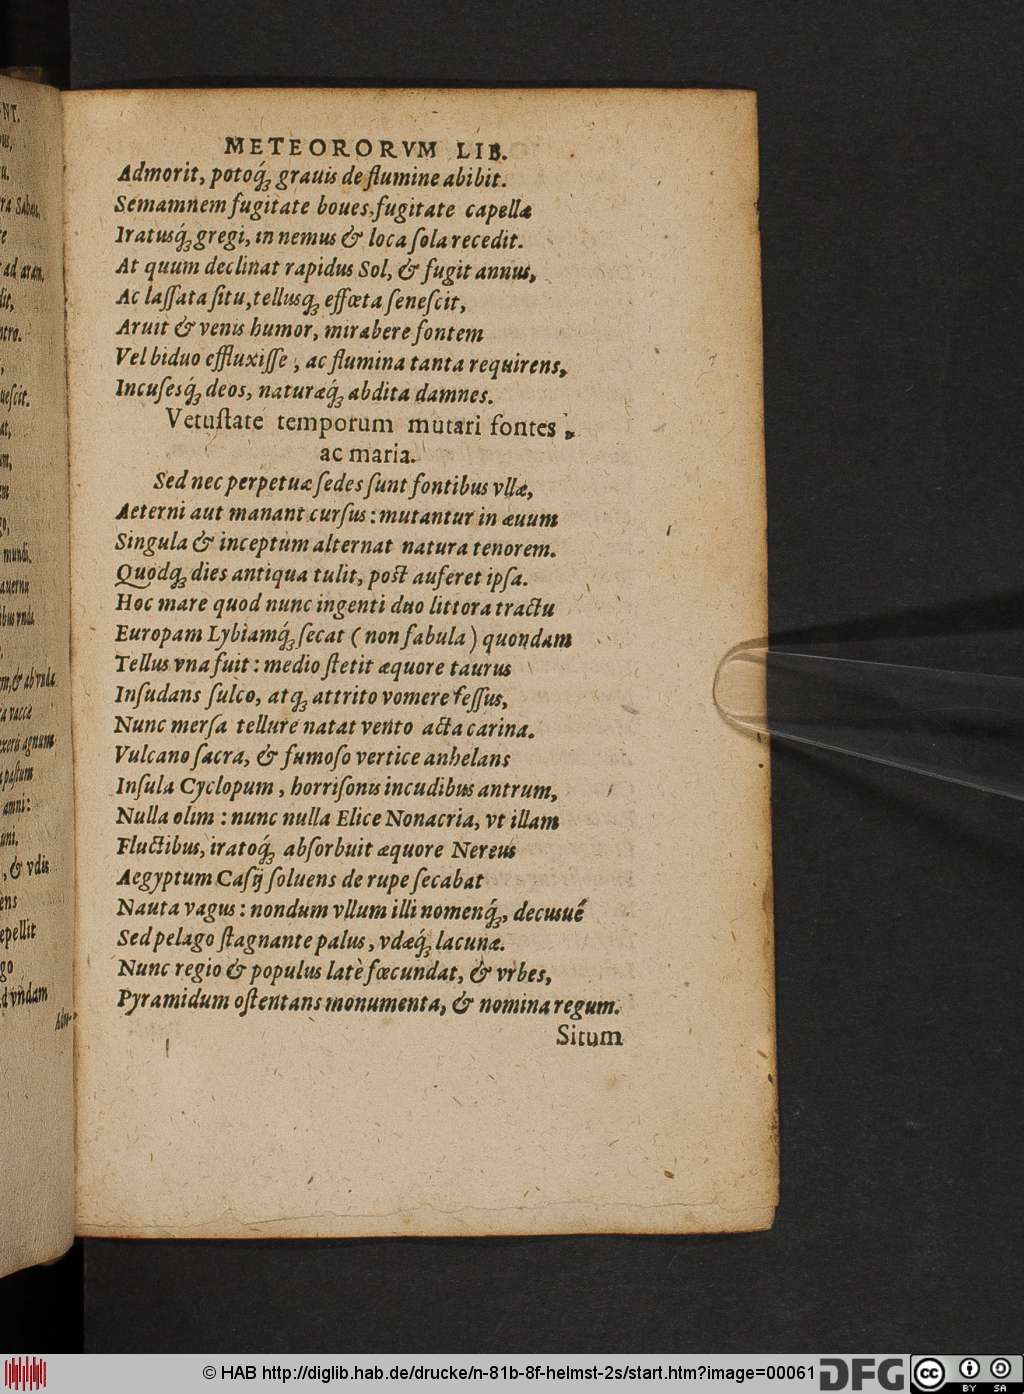 METEORORVM LIB.
Admorit, potoq́; grauis de flumine abibit.
Semamnem fugitate boues, fugitate capellæ
Iratusq́; gregi, in nemus & loca ſola recedit.
At quum declinat rapidus Sol, & fugit annus,
Ac laſſata ſitu, tellusq; effœta ſeneſcit,
Aruit & venis humor, mirabere fontem
Vel biduo effluxiſſe, ac flumina tanta requirens,
Incuſesq́; deos, naturæq́; abdita damnes.
Vetuſtate temporum mutari fontes,
ac maria.
Sed nec perpetuæ ſedes ſunt fontibus vllæ,
Aeterni aut manant curſus: mutantur in æuum
Singula & inceptum alternat natura tenorem.
Quodq; dies antiqua tulit, poſt auferet ipſa.
Hoc mare quod nunc ingenti duo littora tractu
Europam Lybiamq́; ſecat (non fabula) quondam
Tellus vna fuit: medio ſtetit æquore taurus
Inſudans ſulco, atq; attrito vomere feſſus,
Nunc merſa tellure natat vento acta carina.
Vulcano ſacra, & fumoſo vertice anhelans
Inſula Cyclopum, horriſonis incudibus antrum,
Nulla olim: nunc nulla Elice Nonacria, vt illam
Fluctibus, iratoq́; abſorbuit æquore Nereus
Aegyptum Caſij ſoluens de rupe ſecabat
Nauta vagus: nondum vllum illi nomenq́;, decusué
Sed pelago ſtagnante palus, vdæq́; lacunæ.
Nunc regio & populus latè fœcundat, & vrbes,
Pyramidum oſtentans monumenta, & nomina regum.
Situm
© HAB http://diglib.hab.de/drucke/n-81b-8f-helmst-2s/start.htm?image=00061
DFG
cc
BY SA